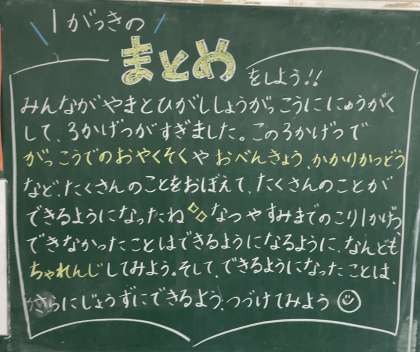 1がっきの
まとめ をしよう!!
みんながやまとひがししょうがっこうににゅうがく
して、3かげつがすぎました。この3かげつで
がっこうでのおやくそくや おべんきょう、かかりかつどう
など、たくさんのことをおぼえて、たくさんのことが
できるようになったね なつやすみまでのこり1かげつ。
できなかったことはできるようになるように、なんども
ちゃれんじしてみよう。そして、できるようになったことは、
さらにじょうずにできるよう、つづけてみよう